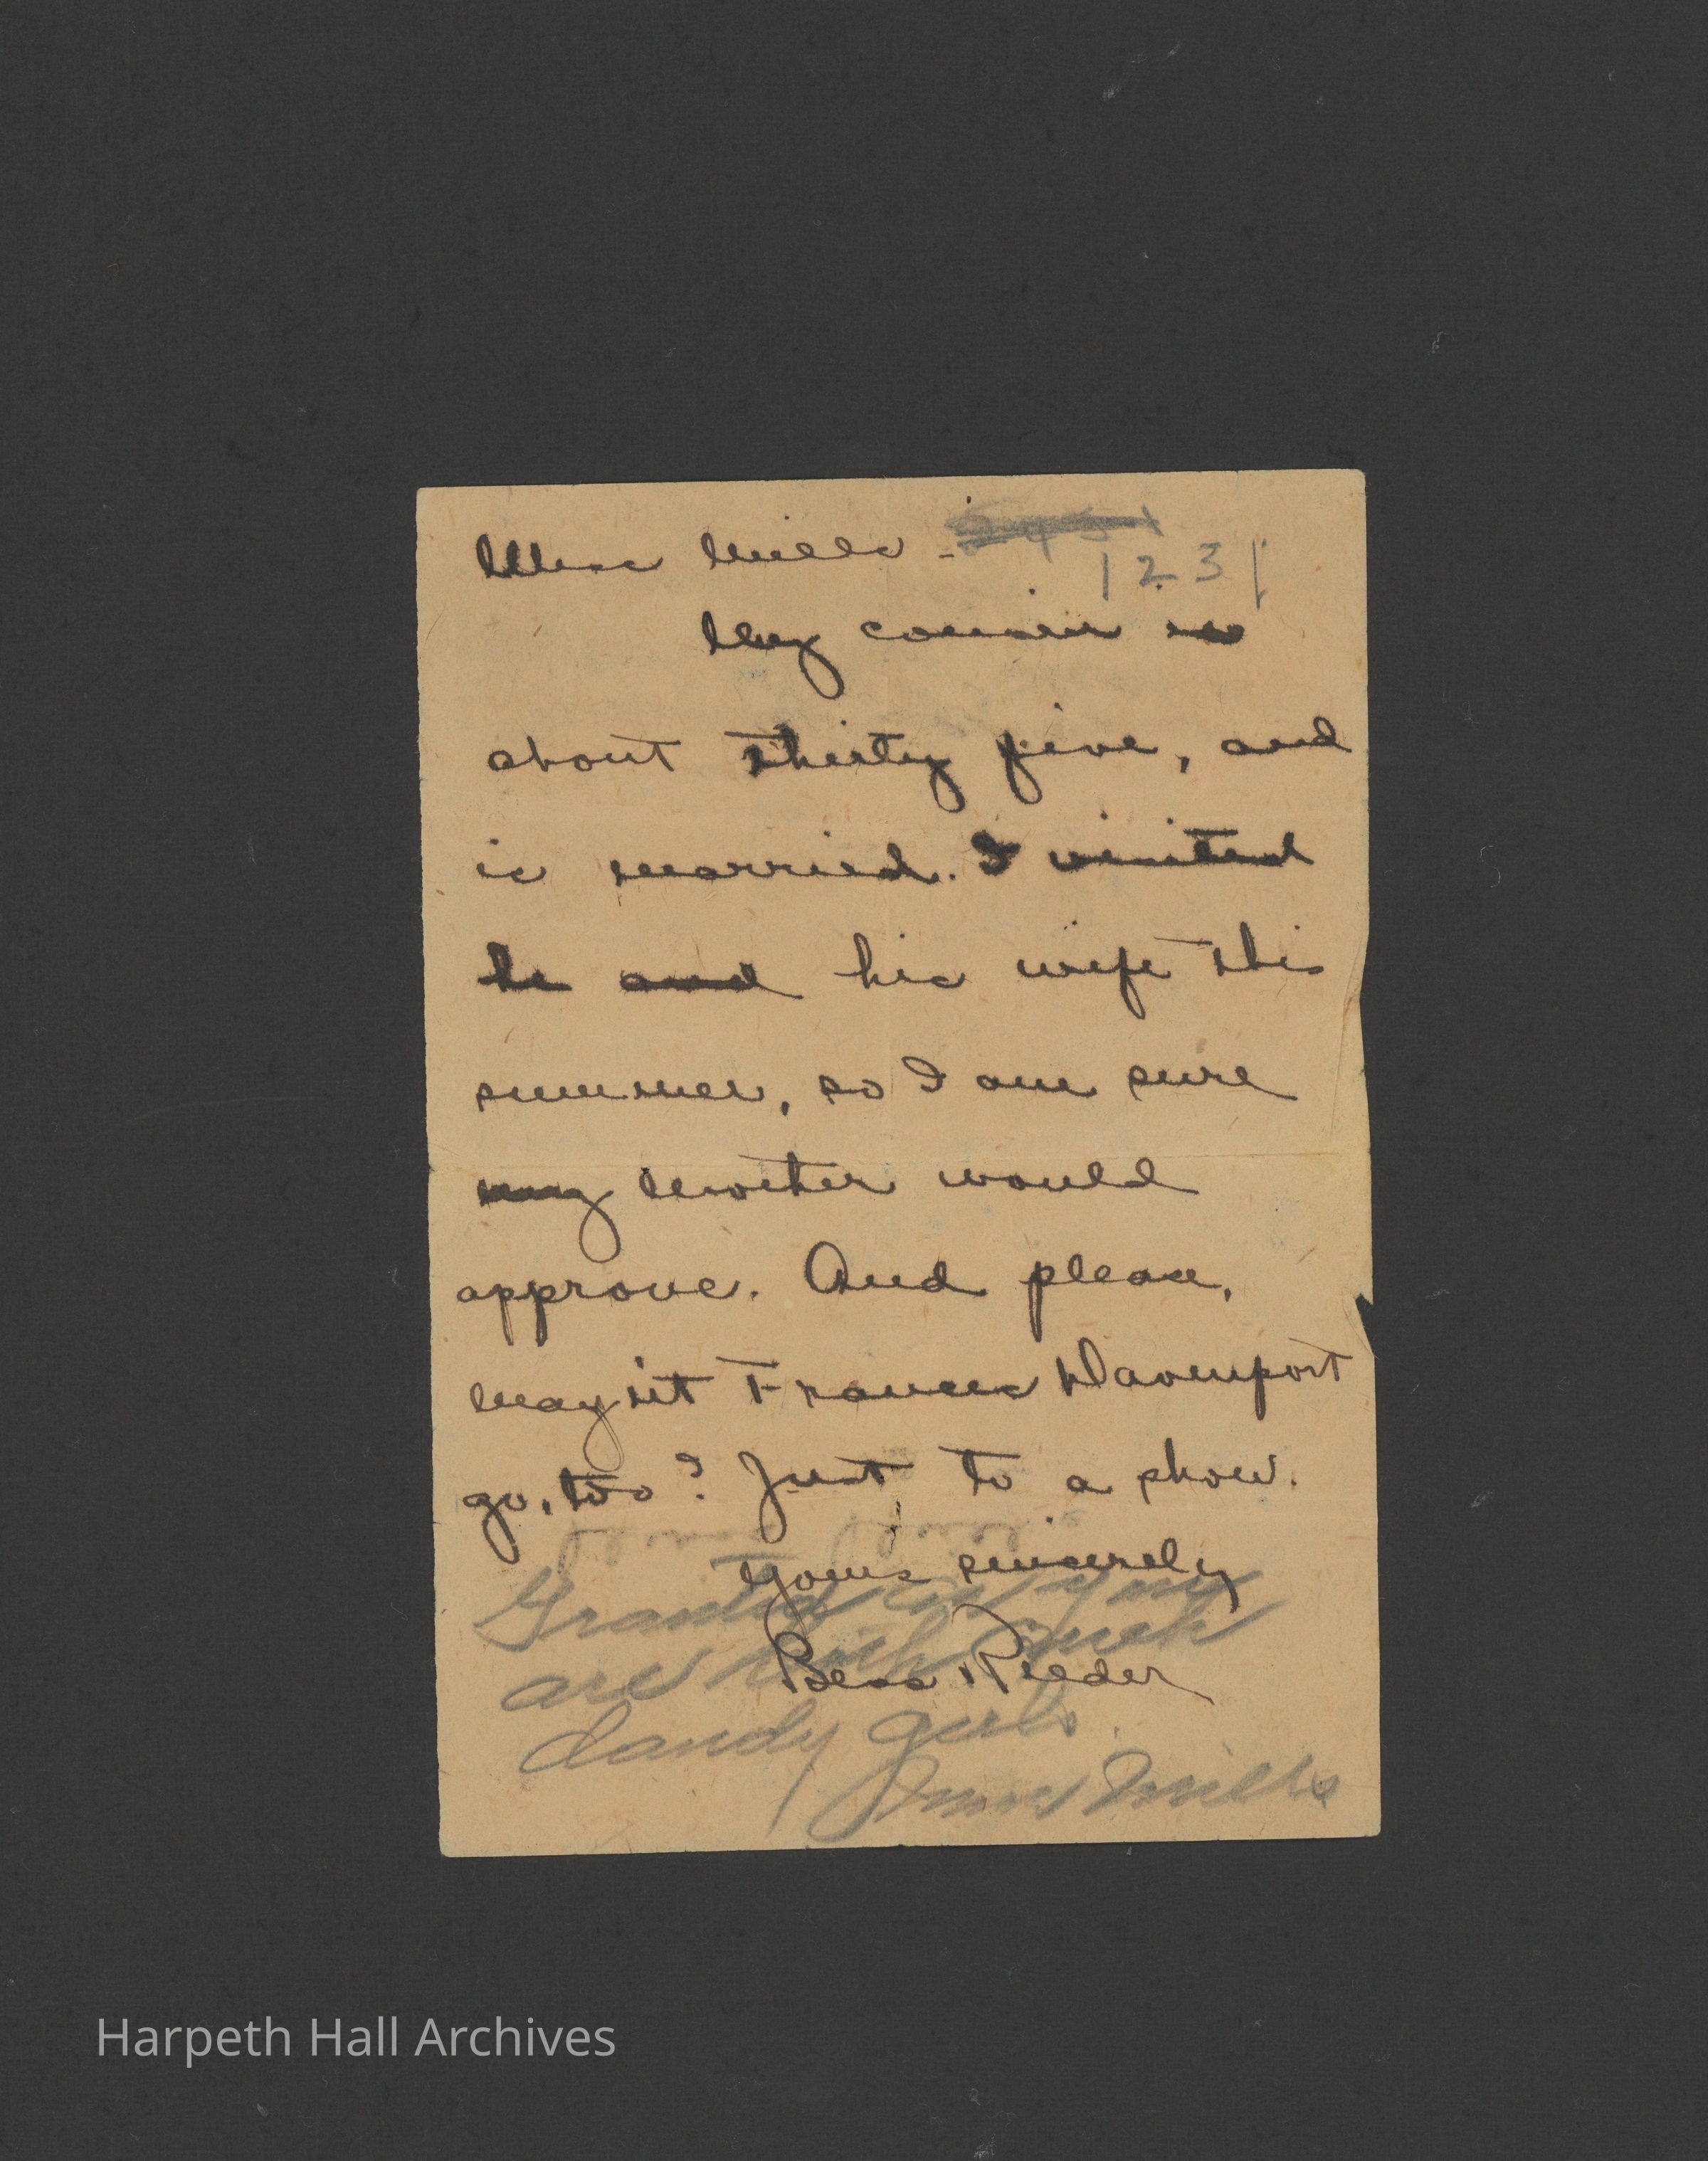 Miss Mills -
1231
My cousin is
about thirty five, and
is married. I visited
he and his wife this
summer, so I am sure
my mother would
approve. And please,
may Frances Davenport
go, too? Just to a show.
Yours sincerely
Granted as you
Bess Rieder
are both such
dandy girls.
Miss Mills
Harpeth Hall Archives